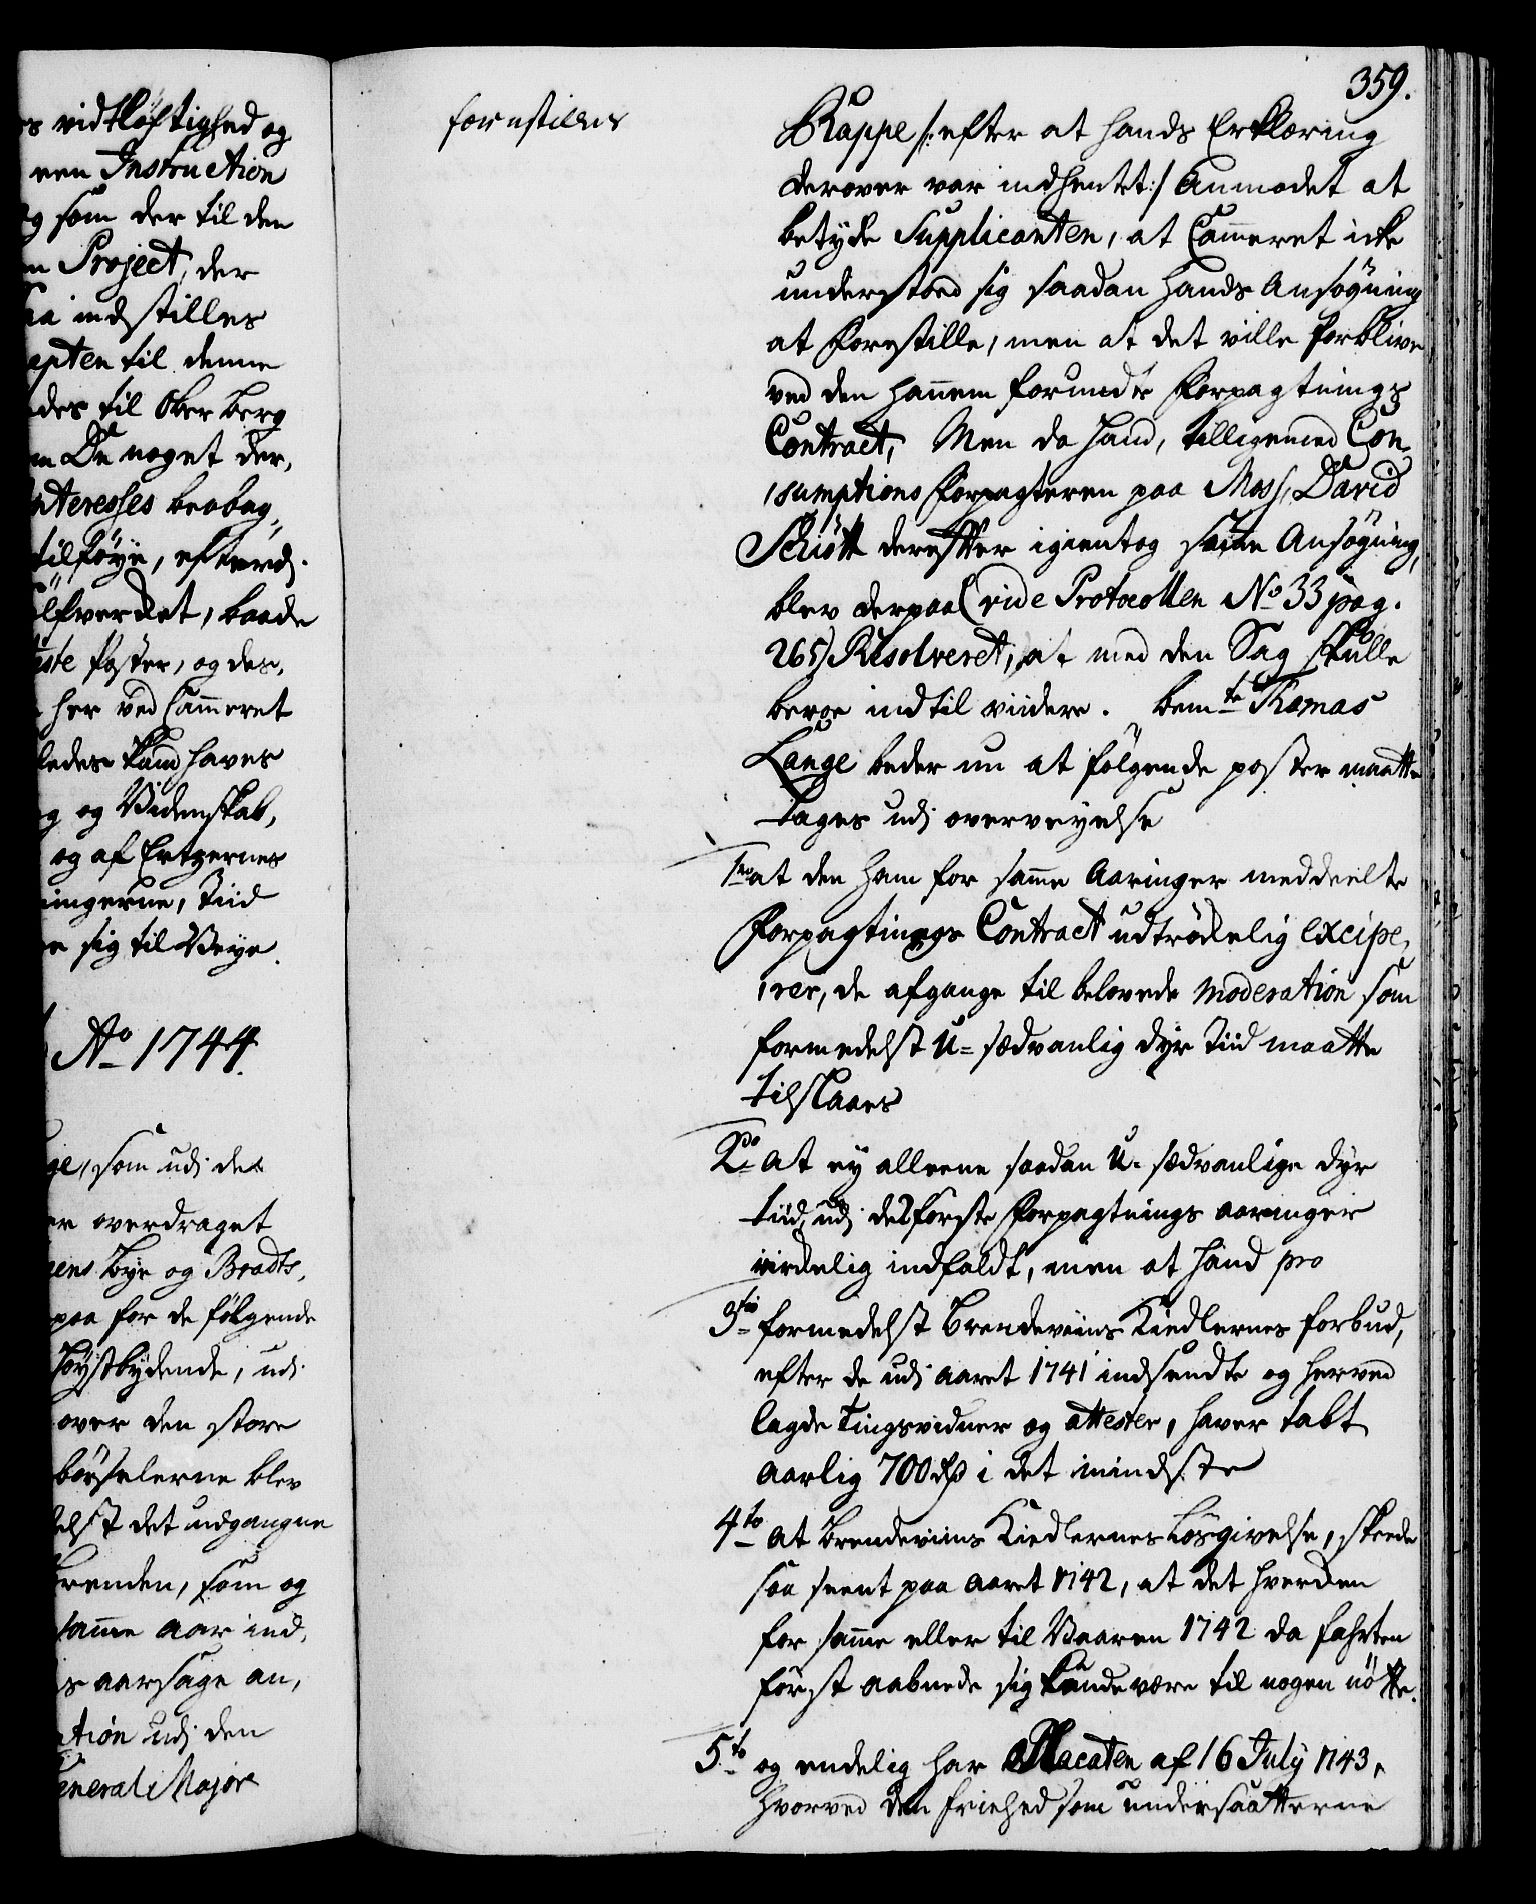 s vidtløftighed og
een Instruction
g som der til den
m Project, der
aa indstilles
epten til denne
des til Ober Berg
m De noget der,
nteresses beobag,
tilføye, efterdj.
ølfverdet, baade
iste poster, og des,
her ved Cammeret
ledes kand haves
g og Videnskab,
og af Ertzernes
ningerne, Tiid
e sig til Veye.
Ao 1744.
ge, som udj det
er overdraget
gens Bye og Bradts,
paa for de følgende
høystbydende, udj
over den store
børselerne blev
delst det udgangne
brenden, som og
samme aar ind,
is aarsage an,
ation udj den
General Major
forestilles
359.
Rappe /: efter at hands Erklæring
derover var indhentet :/ Anmodet at
betyde Supplicanten, at Cammeret icke
understoed sig saadan hands Ansøgning
at forestille, men at det ville forblive
ved den hannem forundte Forpagtnings
Contract, Men da hand, tilligemed Con,
sumptions Forpagteren paa Moss, David
Schiøtt derefter igientog sine Ansøgning,
blev derpaa (vide Protocollen No 33 pag.
265) Resolveret, at med den Sag skulle
beroe indtil viidere. bemte Thomas
Lange beder nu at følgende poster maatte
tages udj overveyelse
1mo at den ham for samme Aaringer meddeelte
Forpagtnings Contract udtrøckelig excipe,
rer, de afgange til belovede moderation som
formedelst U-sædvanlig dyr Tiid maatte
tilstaaes
2do At ey alleene saadan U-sædvanlige dyr
tiid, udj de 2 første Forpagtnings aaringer
virckelig indfaldt, men at hand pro
3tio formedelst Brendeviins Kiedlernes forbud,
efter de udj Aaret 1741 indsendte og herved
lagde Tingsvidner og attester, haver tabt
Aarlig 700 rdr i det mindste
4to At Brendeviins Kiedlernes Løsgivelse, skeede
saa seent paa Aaret 1742, at det hverken
for samme eller til Vaaren 1742 da farten
først aabnede sig kunde være til nogen nøtte.
5to og endelig har Placaten af 16 July 1743,
hvorved den friehed som undersaatterne